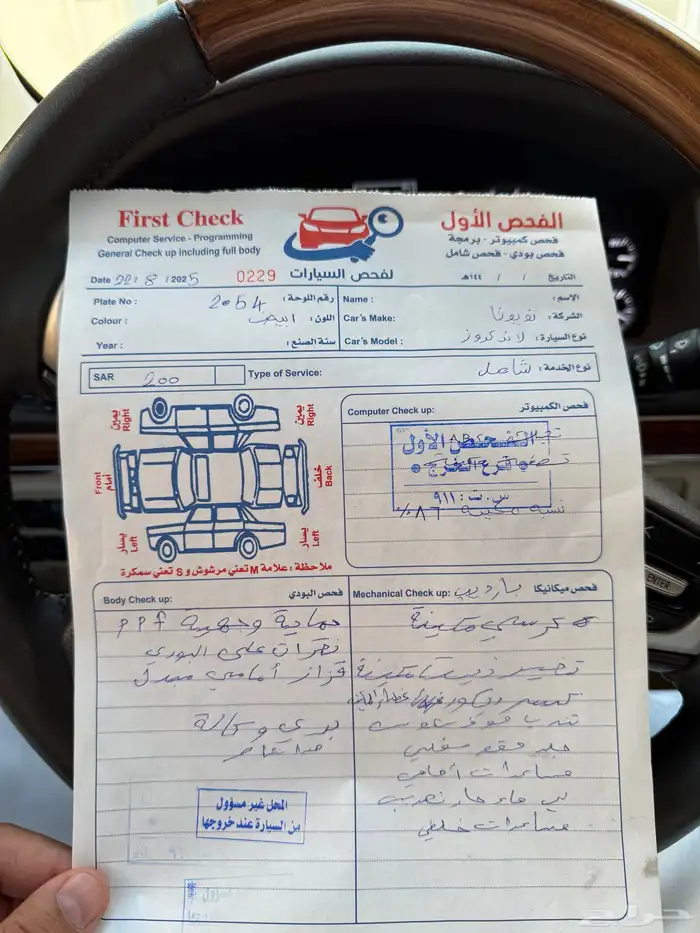 First Check
Computer Service - Programming
General Check up including full body
الفحص الأول
فحص كمبيوتر - برمجة
فحص بودي - فحص شامل
لفحص السيارات
Date 22 / 8 / 2025
0229
التاريخ / / ١٤٤هـ
Plate No : 2054 رقم اللوحة :
Name : الاسم :
Colour : ابيض اللون :
Car's Make: تويوتا الشركة :
Year : سنة الصنع :
Car's Model : لاندكروزر نوع السيارة :
SAR 200
Type of Service: شامل نوع الخدمة :
يمين Right
يمين Right
Front أمام
خلف Back
يسار Left
يسار Left
ملاحظة : علامة M تعني مرشوش و S تعني سمكرة
Computer Check up: فحص الكمبيوتر
الفحص الأول
فرع الخرج
س.ت: ٩١١
نسبة مكينة ٨٦٪
Body Check up: فحص البودي
حماية وجهية PPF
نقرات على البودي
قزاز أمامي مبدل
بدي وكالة
ما عدا
Mechanical Check up: فحص ميكانيكا
كرسي مكينة
تغيير زيت مكينة
كسر ديكور غطاء المكينة
جلد مقص سفلي
مساعدات أمامي
لي ماء حار تهريب
مساعدات خلفي
المحل غير مسؤول
من السيارة عند خروجها
ENTER
حراج